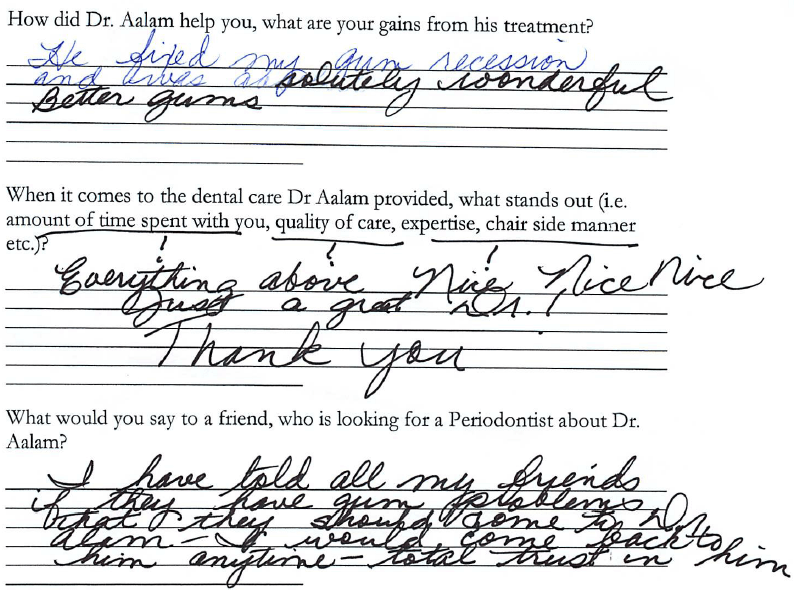 How did Dr. Aalam help you, what are your gains from his treatment?
He fixed my gum recession
and gives absolutely wonderful
Better gums
When it comes to the dental care Dr Aalam provided, what stands out (i.e.
amount of time spent with you, quality of care, expertise, chair side manner
etc.)?
! ! !
Everything above Nice Nice Nice
Just a great Dr.!
Thank you
What would you say to a friend, who is looking for a Periodontist about Dr.
Aalam?
I have told all my friends
if they have gum problems
that they should come to Dr.
Alam – I would come back to him
him anytime – total trust in